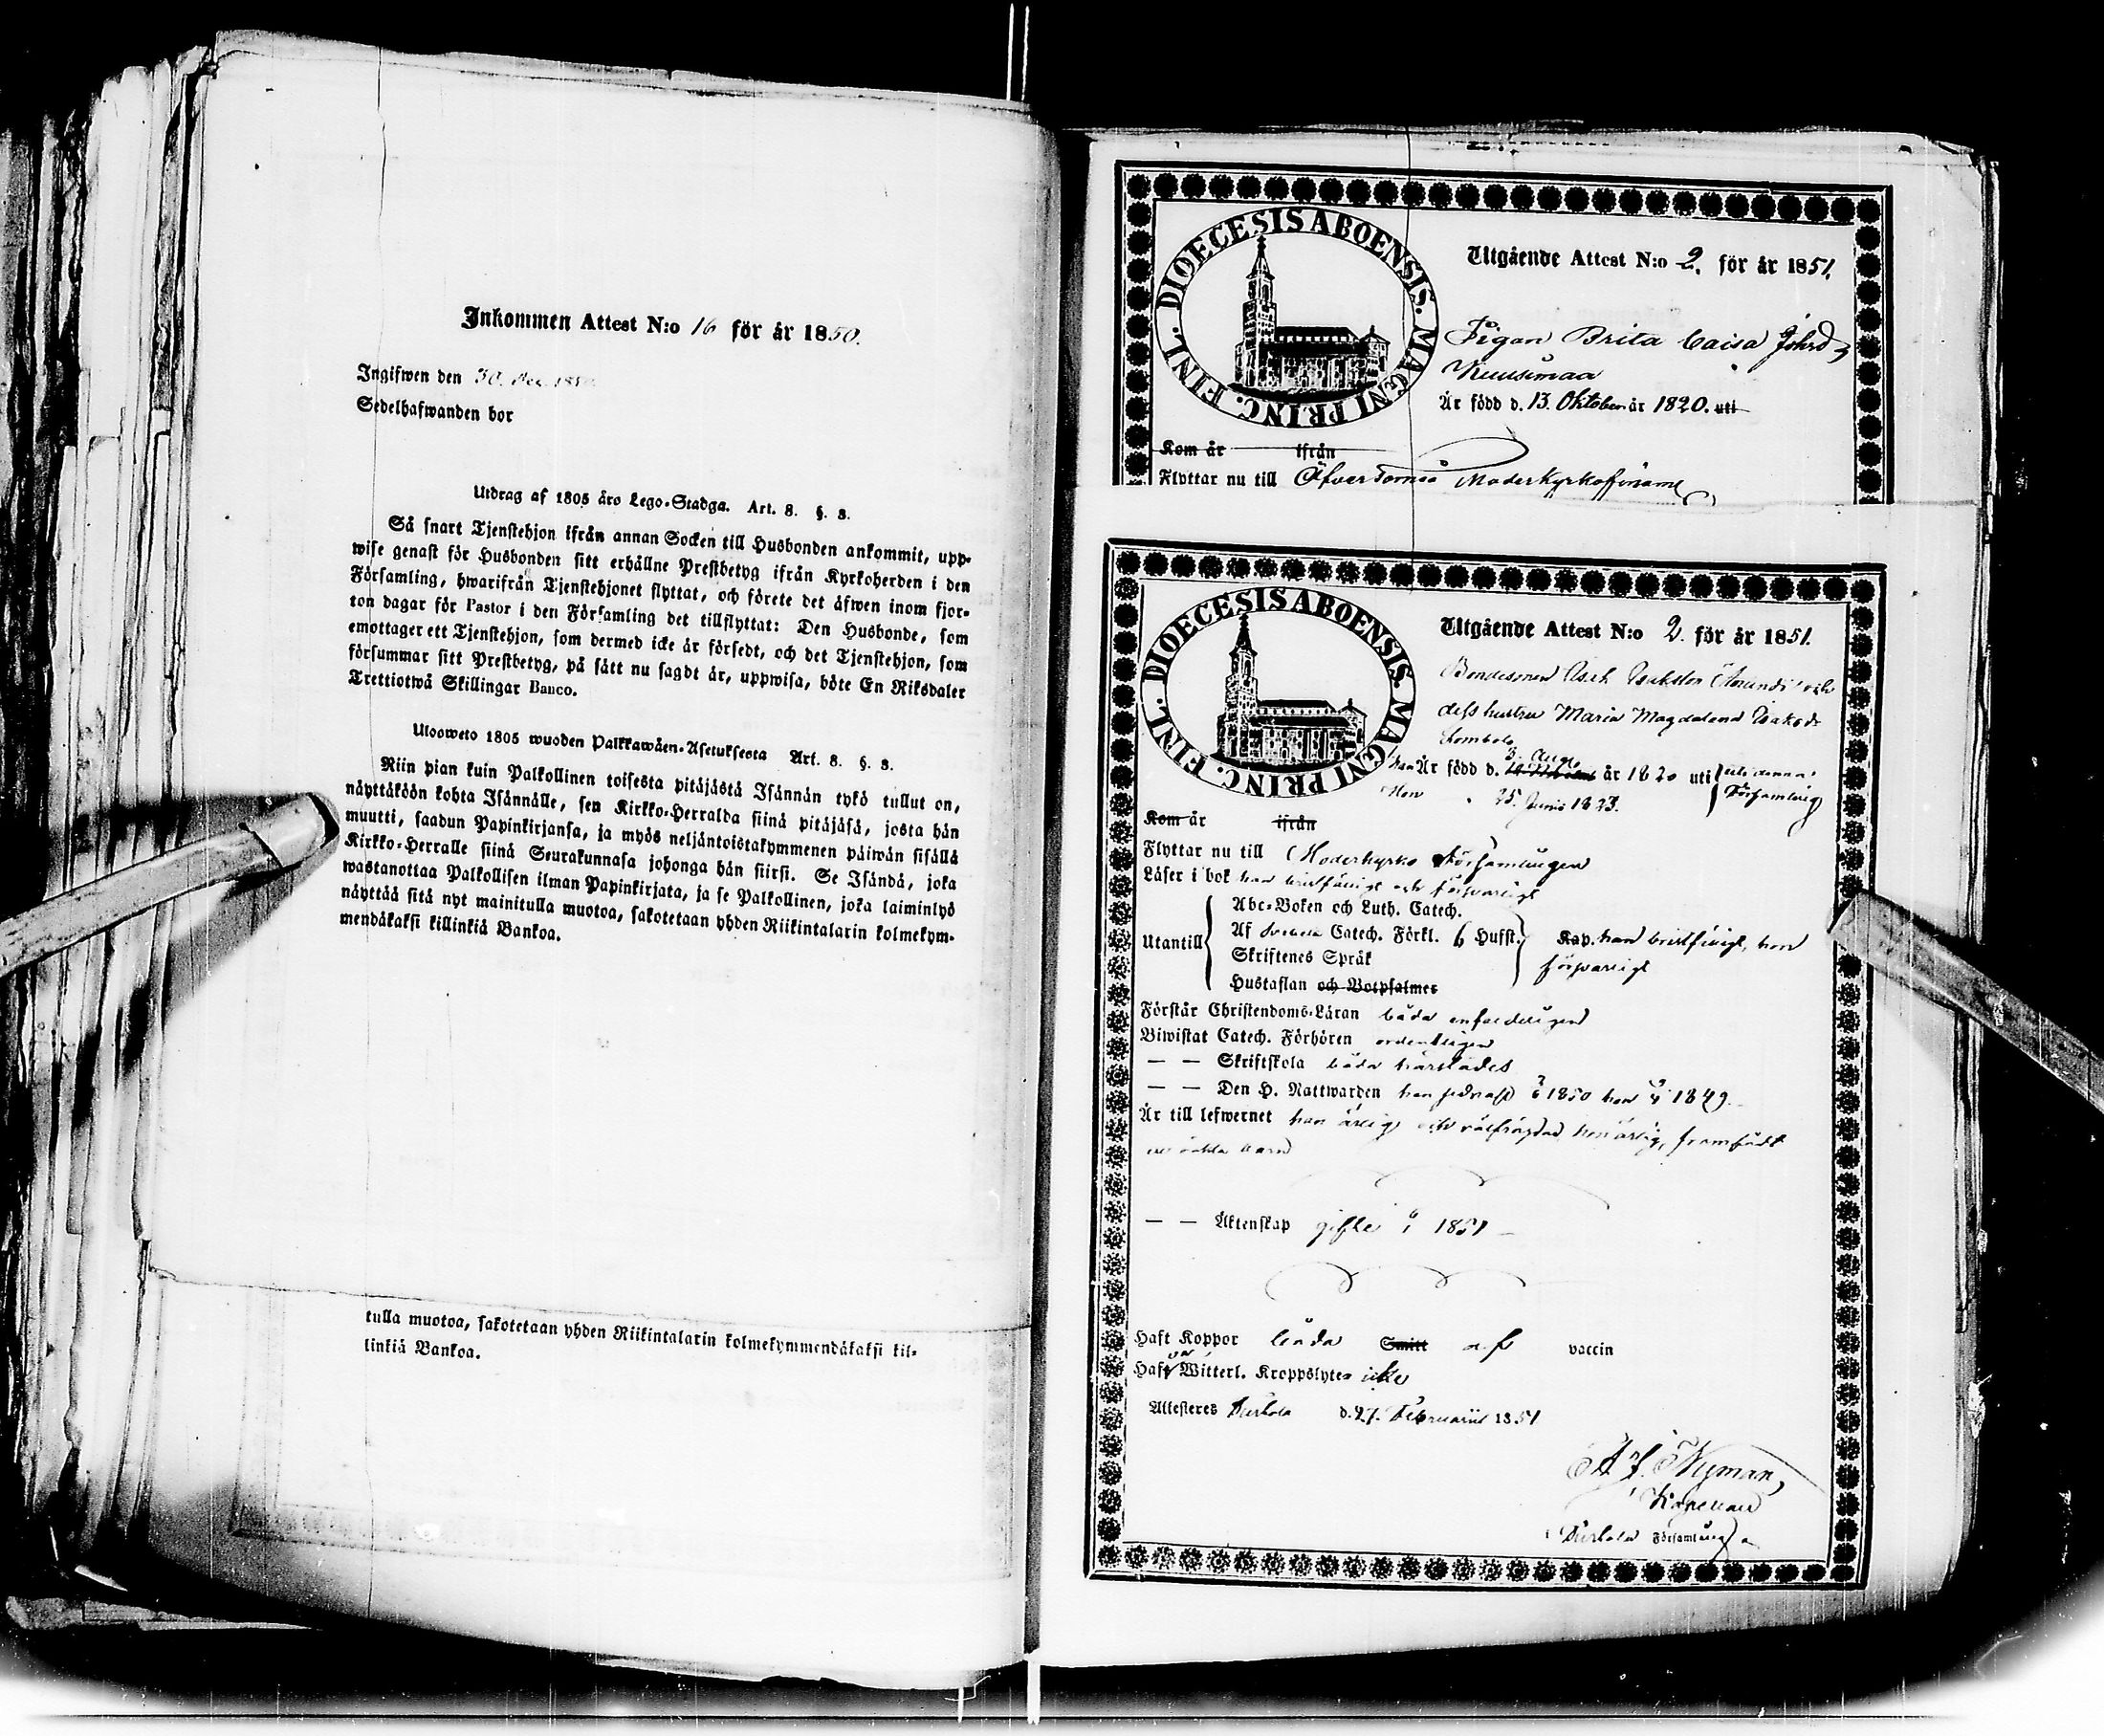 Inkommen Attest N:o 16 för år 1850.
Ingifwen den 30. Dec. 1850
Sedelhafwanden bor
Utdrag af 1805 års Lego-Stadga. Art. 8. §. 3.
Så snart Tjenstehjon ifrån annan Socken till Husbonden ankommit, upp-
wise genast för Husbonden sitt erhållne Prestbetyg ifrån Kyrkoherden i den
Församling, hwarifrån Tjenstehjonet flyttat, och förete det äfwen inom fjor-
ton dagar för Pastor i den Församling det tillflyttat: Den Husbonde, som
emottager ett Tjenstehjon, som dermed icke är försedt, och det Tjenstehjon, som
försummar sitt Prestbetyg, på sätt nu sagdt är, uppwisa, böte En Riksdaler
Trettiotwå Skillingar Banco.
Uloosweto 1805 wuoden Palkkawäen-Asetuksesta Art. 8. §. 3.
Niin pian kuin Palkollinen toisesta pitäjästä Isännän tykö tullut on,
näyttäköön kohta Isännälle, sen Kirkko-Herralda siinä pitäjäsä, josta hän
muutti, saadun Papinkirjansa, ja myös neljäntoistakymmenen päiwän sisällä
Kirkko-Herralle siinä Seurakunnasa johonga hän siirsi. Se Isändä, joka
wastanottaa Palkollisen ilman Papinkirjata, ja se Palkollinen, joka laiminlyö
näyttää sitä nyt mainitulla muotoa, sakotetaan yhden Riikintalarin kolmekym-
mendäkaksi killinkiä Bankoa.
tulla muotoa, sakotetaan yhden Riikintalarin kolmekymmendäkaksi kil-
linkiä Bankoa.
FINL. DIOECESIS ABOENSIS. MAGNI PRINC.
Utgående Attest N:o 2. för år 1851.
Pigan Brita Caisa Johsd.
Kuusimaa
Är född d. 13. Oktober år 1820. uti
Kom år ifrån
Flyttar nu till Öfver Torneå Moderkyrkoförsaml
FINL. DIOECESIS ABOENSIS. MAGNI PRINC.
Utgående Attest N:o 2. för år 1851.
Bondesonen Isak Isaksson och
dess hustru Maria Magdalena Isaksdr
Lombolo
han Är född d. 3. Aug. år 1820 uti denna
Hon 25. Junii 1823. Församling
Kom år ifrån
Flyttar nu till Moderkyrko Församlingen
Läser i bok han bristfälligt och försvarligt
Abc-Boken och Luth. Catech.
Utantill Af Svebelii Catech. Förkl. 6 Hufst. Kap. han bristfälligt, hon
Skriftenes Språk försvarligt
Hustaflan och Botpsalmer
Förstår Christendoms-Läran båda enfaldeligen
Biwistat Catech. Förhören ordentligen
— — Skriftskola båda härstädes
— — Den H. Nattwarden han sednast 1850 hon 1849.
Är till lefwernet han ärlig och välfrägdad, hon ärlig, framfödt
oäkta barn
— — Äktenskap gifte 1851
Haft Koppor båda Smitt af vaccin
Haft Witterl. Kroppslyte icke
Attesteres Turtola d. 27. Februarii 1851
A. F. Nyman,
Kapellan
Turtola Församling